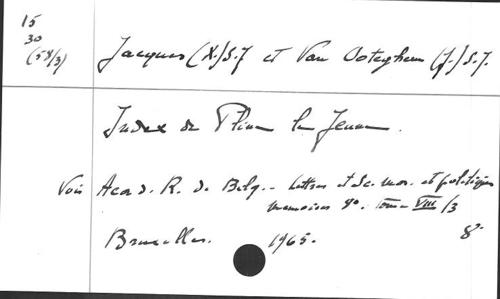 15
30
(58/3)
Jacques (X.) S.J et Van Ooteghem (J.) S.J.
Index de Pline le Jeune.
Voir Acad. R. de Belg. - Lettres et Sc. mor. et politiques
Memoires 8º. Tome VIII/3
Bruxelles. 1965. 8º